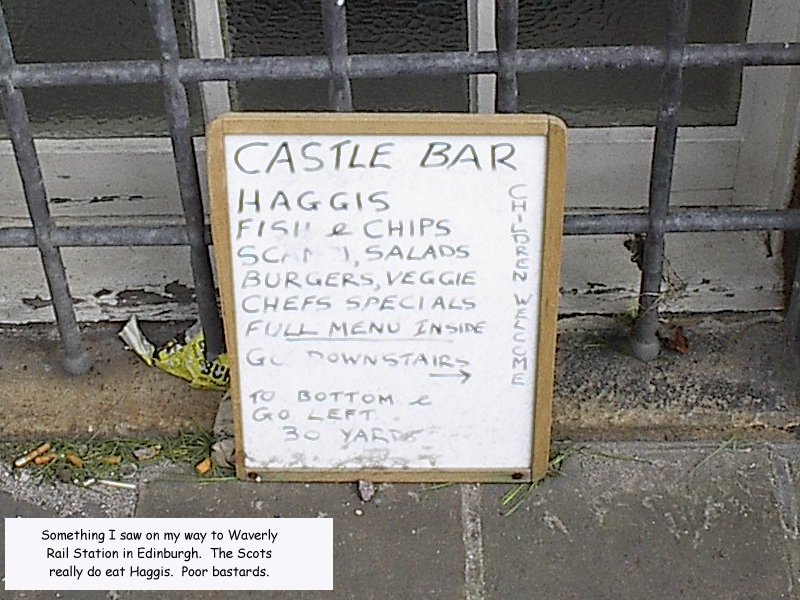 CASTLE BAR
HAGGIS
FISH & CHIPS
SALADS
BURGERS, VEGGIE
CHEFS SPECIALS
FULL MENU INSIDE
GO DOWNSTAIRS
→
TO BOTTOM &
GO LEFT
30 YARDS
CHILDREN WELCOME
Something I saw on my way to Waverly
Rail Station in Edinburgh. The Scots
really do eat Haggis. Poor bastards.